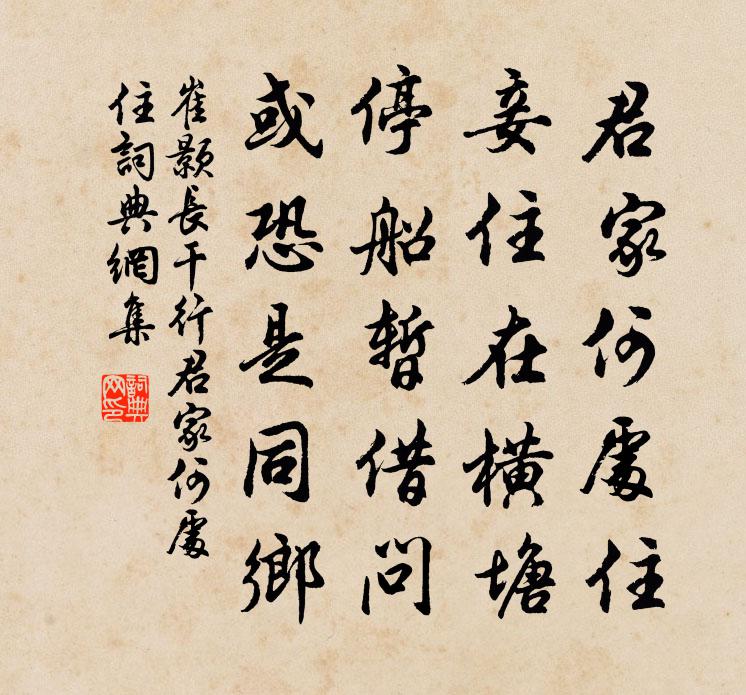 君家何處住
妾住在橫塘
停船暫借問
或恐是同鄉
崔顥長干行君家何處
住詞典網集
詞典
网印